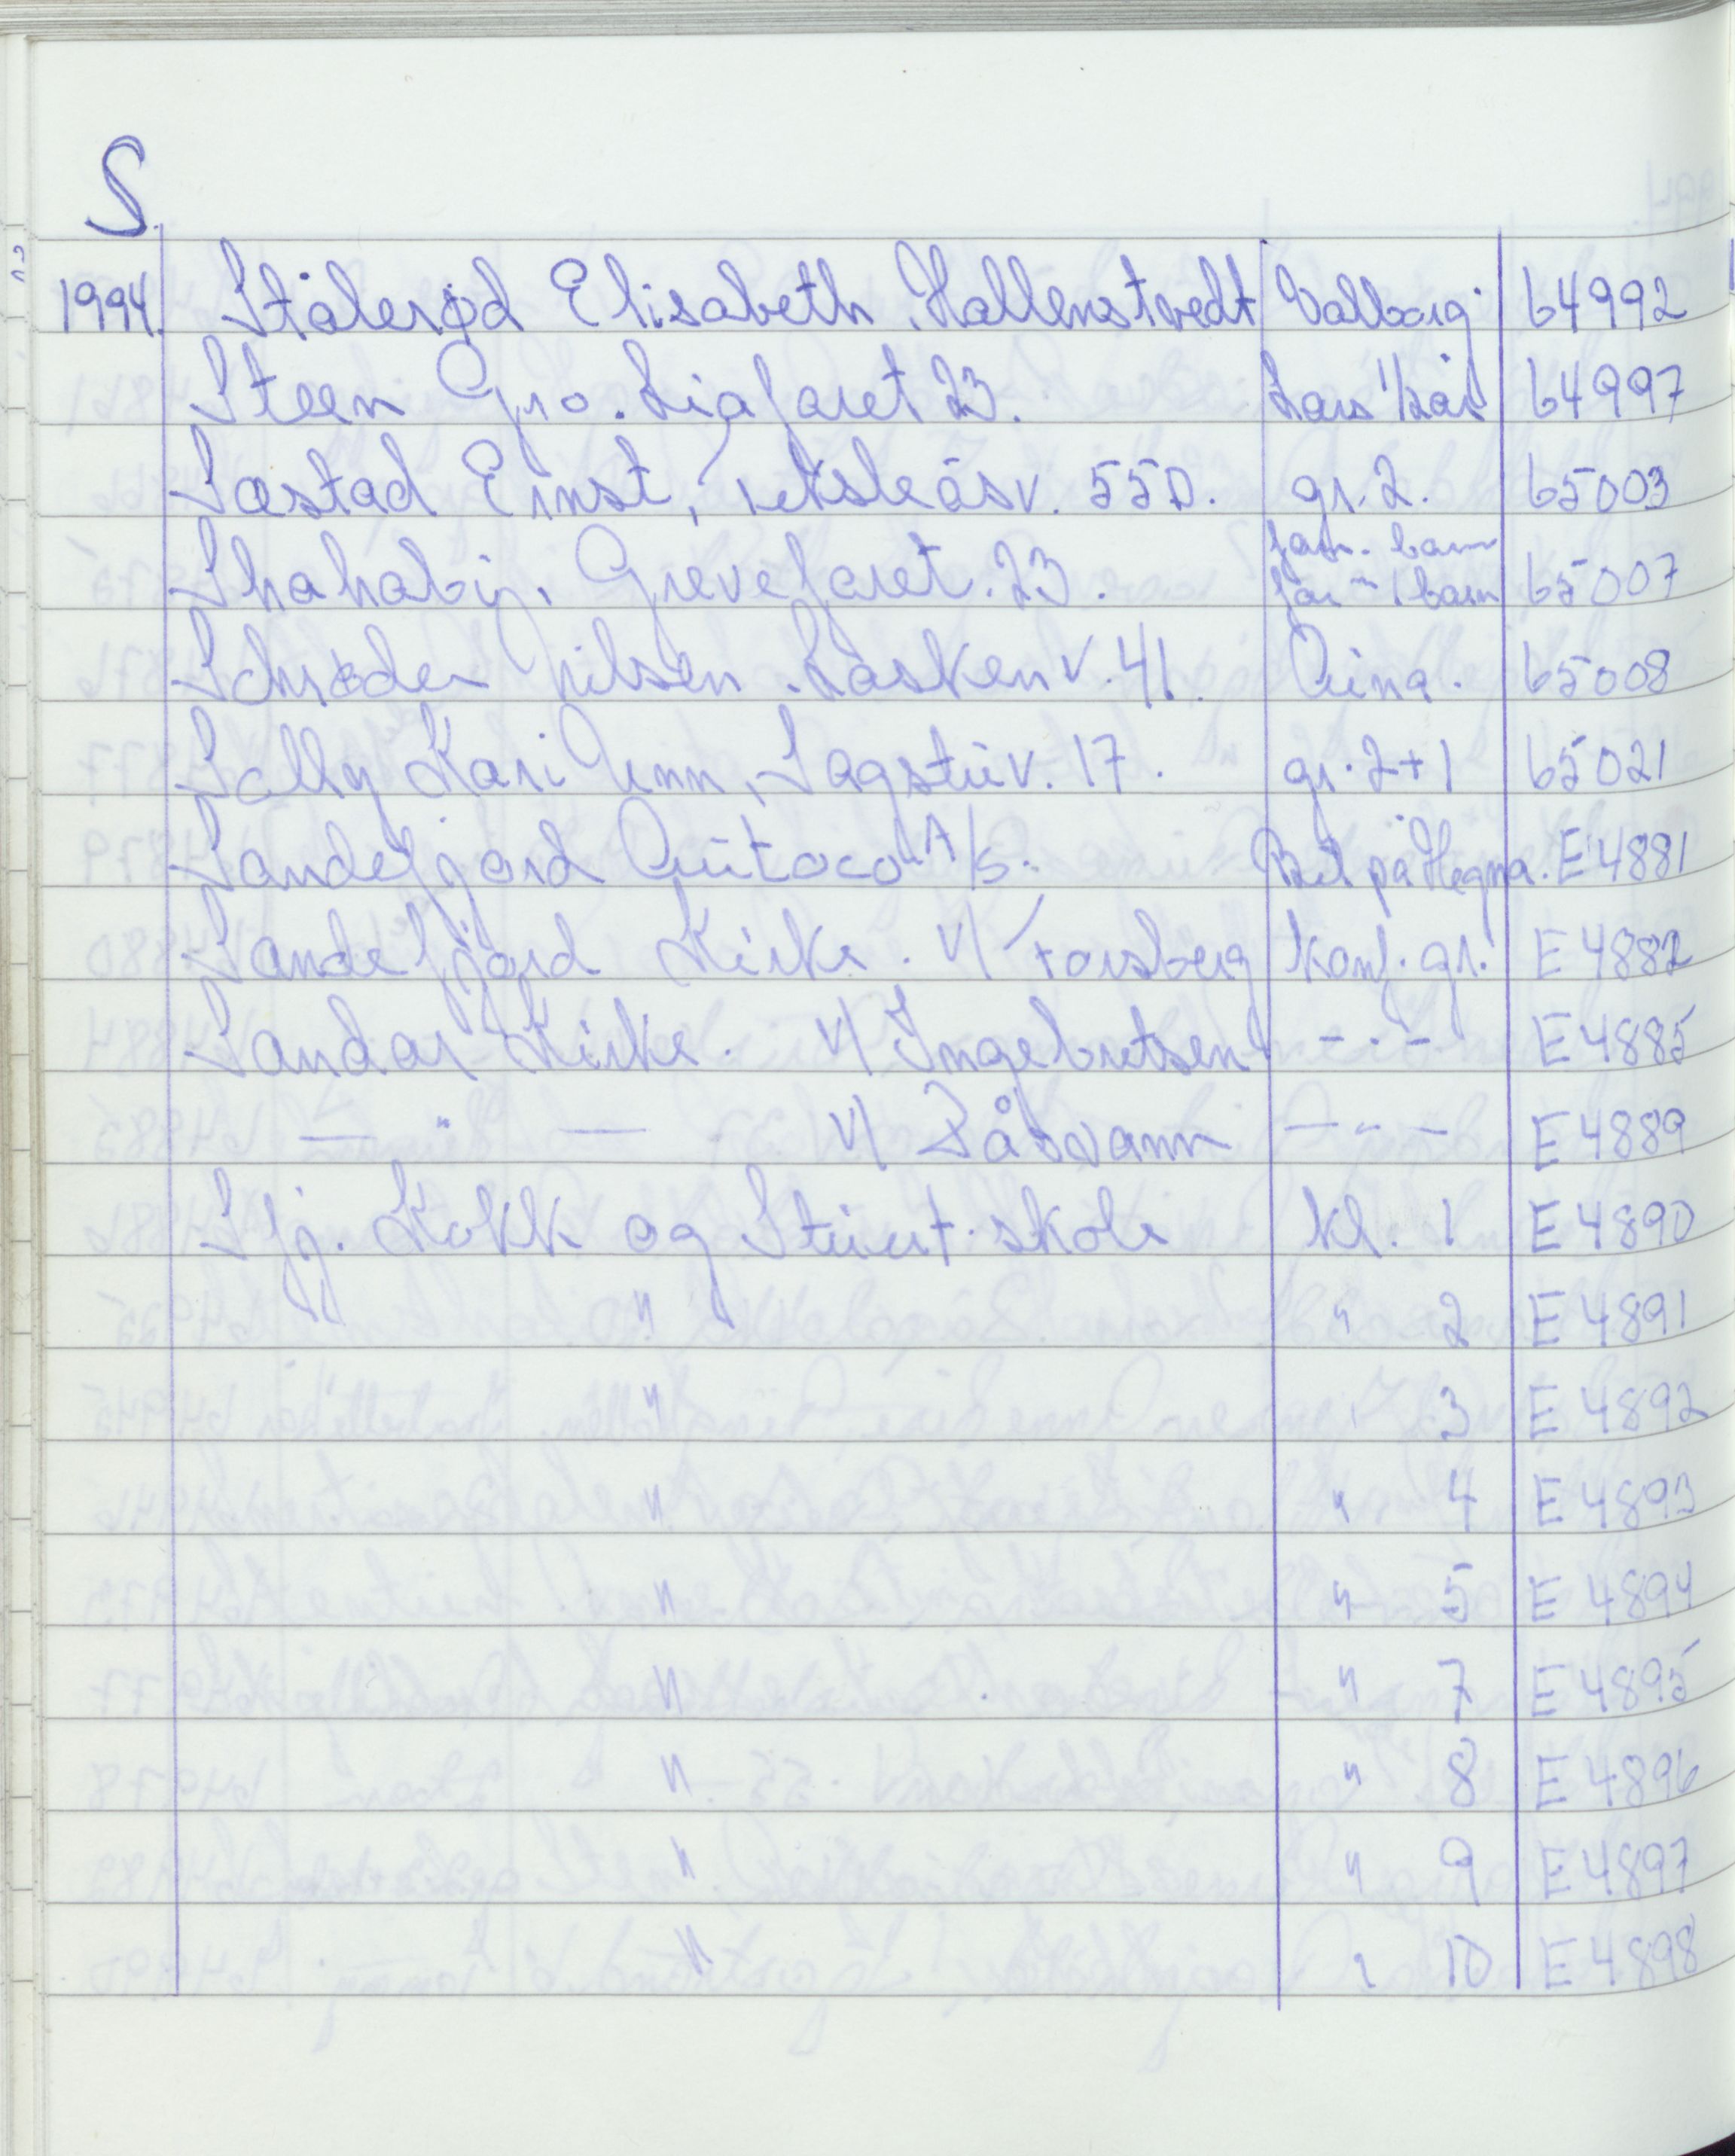 S.
1994. Stålerød Elisabeth. Hallenstvedt Valborg 64992
Steen Gro. Liafaret 23. Lars 1/2 år 64997
Sæstad Ernst, 55D. gr. 2. 65003
Shahabi, Grevefaret. 23. fam. barn far 1 barn 65007
Schrøder Nilsen. Laskenv. 41. Aina. 65008
Solly Kari Ann, Sagstuv. 17. gr. 2+1 65021
Sandefjord Autoco A/S. Bil på Hegna. E 4881
Sandefjord Kirke. v/ Forsberg Konf. gr. E 4882
Sandar Kirke. v/ Ingebretsen - · - E 4885
— " — v/ Båsvann — - - — E 4889
Sfj. Kokk og Stuert. skole kl. 1 E 4890
" " 2 E 4891
" " 3 E 4892
" " 4 E 4893
" " 5 E 4894
" " 7 E 4895
" " 8 E 4896
" " 9 E 4897
" " 10 E 4898